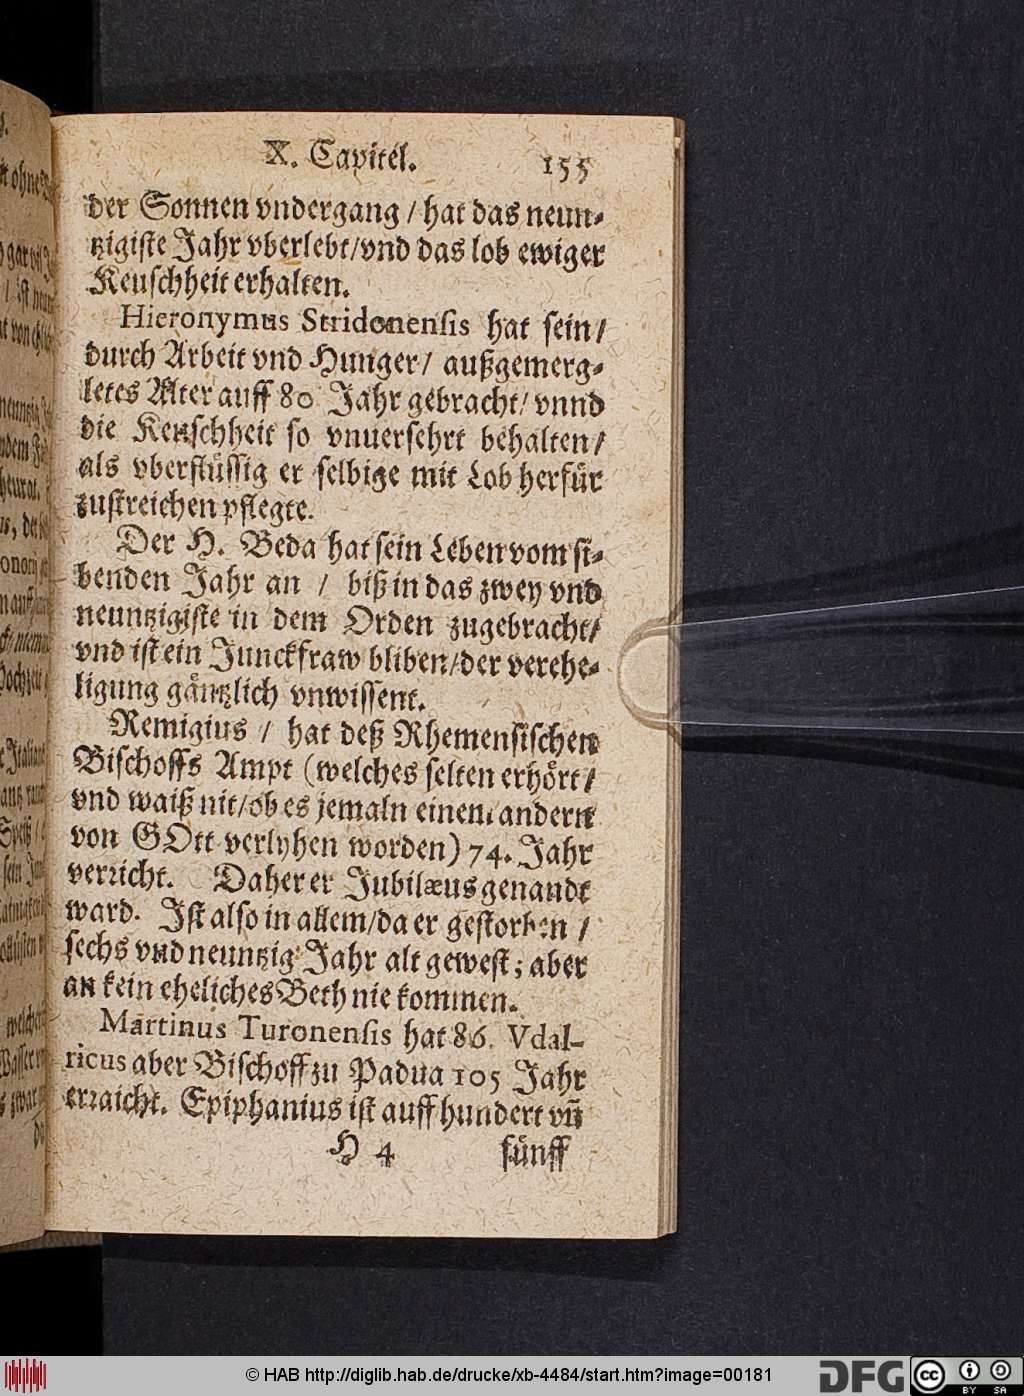 X. Capitel. 155
der Sonnen vndergang / hat das neun-
tzigiste Jahr vberlebt/vnd das lob ewiger
Keuschheit erhalten.
Hieronymus Stridonensis hat sein/
durch Arbeit vnd Hunger/ außgemerg-
letes Alter auff 80 Jahr gebracht/ vnnd
die Keuschheit so vnuersehrt behalten/
als vberflüssig er selbige mit Lob herfür
zustreichen pflegte.
Der H. Beda hat sein Leben vom si-
benden Jahr an / biß in das zwey vnd
neuntzigiste in dem Orden zugebracht/
vnd ist ein Junckfraw bliben/der verehe-
ligung gäntzlich vnwissent.
Remigius / hat deß Rhemensischen
Bischoffs Ampt (welches selten erhört/
vnd waiß nit/ob es jemaln einem andern
von GOtt verlyhen worden) 74. Jahr
verricht. Daher er Jubilæus genandt
ward. Ist also in allem/da er gestorben /
sechs vnd neuntzig Jahr alt gewest; aber
an kein eheliches Beth nie kommen.
Martinus Turonensis hat 86. Vdal-
ricus aber Bischoff zu Padua 105 Jahr
erraicht. Epiphanius ist auff hundert vn̄
H 4 fünff
© HAB http://diglib.hab.de/drucke/xb-4484/start.htm?image=00181
DFG
cc
BY SA